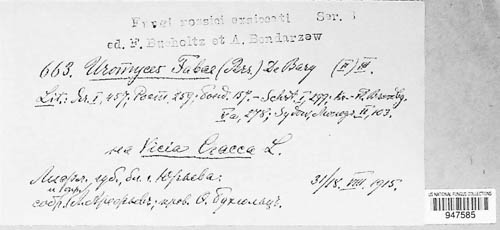 Fungi rossici exsiccati Ser. I
ed. F. Bucholtz et A. Bondarzew
663. Uromyces Fabae (Pers.) De Bary (II) III.
Lit.: Sr. I, 457; 259; Bond. 157. - Schröt. I, 299; Kr.-Fl. Brandbg.
Va, 278; Sydow, Monogr. II, 103.
на Vicia Cracca L.
Лифл. губ., бл. г. Юрьева.
собр. ; пров. Ѳ. Бухгольцъ.
31/18. VIII. 1915.
US NATIONAL FUNGUS COLLECTIONS
947585